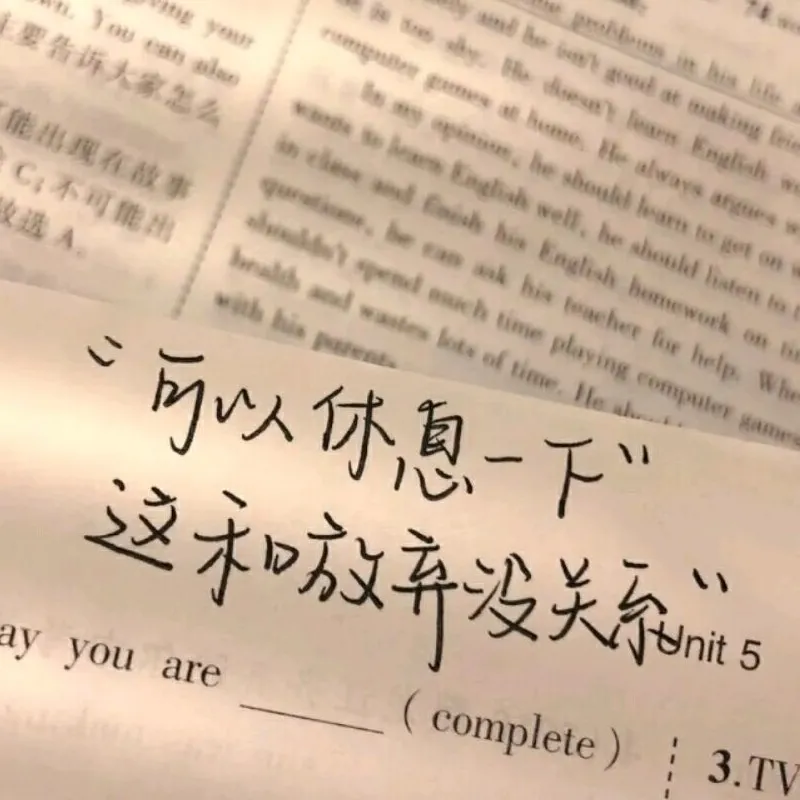 giving your
own. You can also
主要告诉大家怎么
可能出现在故事
C;不可能出
故选 A.
the problems in his life
and he isn't good at making
is too shy. He doesn't learn English
computer games at home. He always argues
In my opinion, he should learn to get on
wants to learn English well, he should listen to
in class and finish his English homework on
questions, he can ask his teacher for help.
shouldn't spend much time playing computer games
health and wastes lots of time. He
with his parents.
"可以休息一下"
这和放弃没关系"
Unit 5
ay you are ______ ( complete )
3.TV